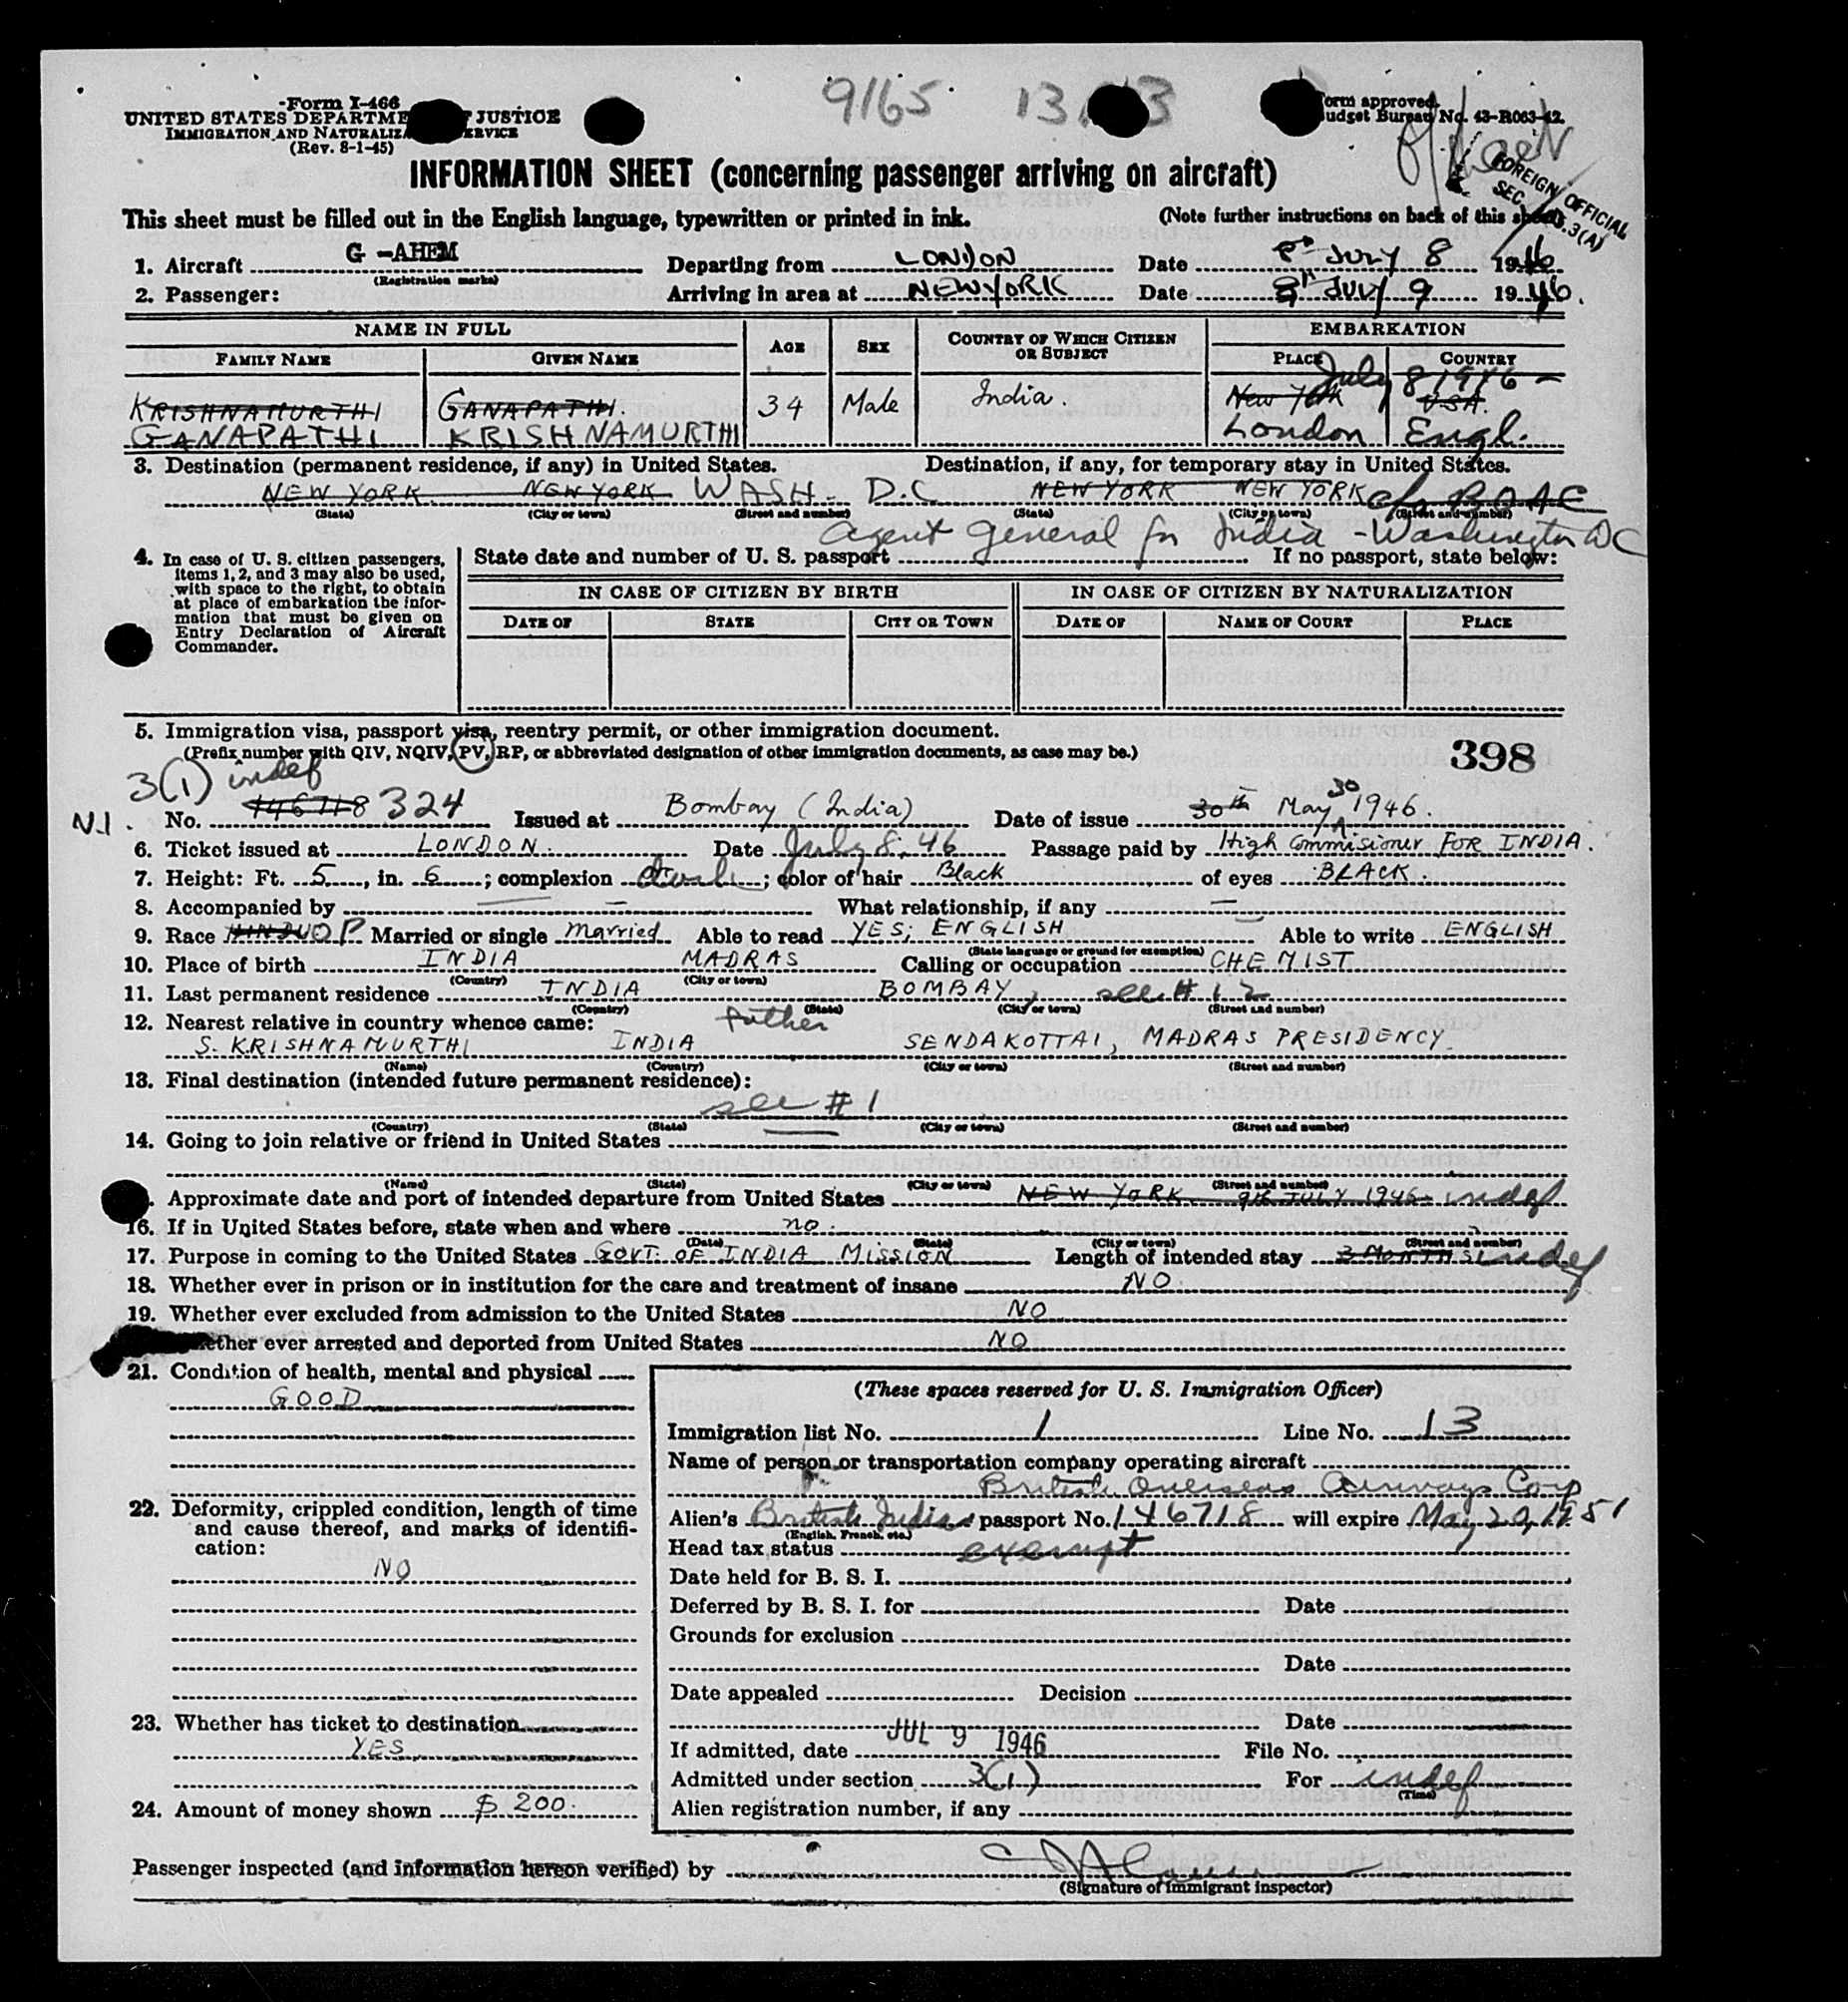 9165 13. 3
Form I-466
UNITED STATES DEPARTME JUSTICE
IMMIGRATION AND NATURALIZA ERVICE
(Rev. 8-1-45)
orm approved.
udget Bureau No. 43-R063-42.
FOREIGN OFFICIAL
SEC. 3(A)
INFORMATION SHEET (concerning passenger arriving on aircraft)
This sheet must be filled out in the English language, typewritten or printed in ink. (Note further instructions on back of this sheet)
1. Aircraft G-AHEM Departing from LONDON Date JULY 8 1946
(Registration marks)
2. Passenger: Arriving in area at NEW YORK Date JULY 9 1946.
NAME IN FULL AGE SEX COUNTRY OF WHICH CITIZEN OR SUBJECT EMBARKATION
FAMILY NAME GIVEN NAME PLACE COUNTRY
July 8 1946 -
KRISHNAMURTHI GANAPATHI. 34 Male India. New York USA.
GANAPATHI KRISHNAMURTHI London Engl.
3. Destination (permanent residence, if any) in United States. Destination, if any, for temporary stay in United States.
NEW YORK. NEW YORK WASH- D.C NEW YORK NEW YORK c/o BOAC
(State) (City or town) (Street and number) (State) (City or town) (Street and number)
agent general for India - Washington DC
4. In case of U. S. citizen passengers, items 1, 2, and 3 may also be used, with space to the right, to obtain at place of embarkation the information that must be given on Entry Declaration of Aircraft Commander.
State date and number of U. S. passport If no passport, state below:
IN CASE OF CITIZEN BY BIRTH IN CASE OF CITIZEN BY NATURALIZATION
DATE OF STATE CITY OR TOWN DATE OF NAME OF COURT PLACE
5. Immigration visa, passport visa, reentry permit, or other immigration document.
(Prefix number with QIV, NQIV, PV, RP, or abbreviated designation of other immigration documents, as case may be.) 398
3(1) indef
N.I. No. 146718 324 Issued at Bombay (India) Date of issue 30th May 30 1946.
6. Ticket issued at LONDON. Date July 8, 46 Passage paid by High Commisioner FOR INDIA.
7. Height: Ft. 5, in. 6; complexion dark; color of hair Black of eyes BLACK.
8. Accompanied by — What relationship, if any —
9. Race HINDU Married or single married Able to read YES; ENGLISH Able to write ENGLISH
(State language or ground for exemption)
10. Place of birth INDIA MADRAS Calling or occupation CHEMIST
(Country) (City or town)
11. Last permanent residence INDIA BOMBAY, see # 12
(Country) (State) (City or town) (Street and number)
12. Nearest relative in country whence came: father
S. KRISHNAMURTHI INDIA SENDAKOTTAI, MADRAS PRESIDENCY.
(Name) (Country) (City or town) (Street and number)
13. Final destination (intended future permanent residence):
see # 1
(Country) (State) (City or town) (Street and number)
14. Going to join relative or friend in United States —
(Name) (State) (City or town) (Street and number)
. Approximate date and port of intended departure from United States NEW YORK. 9th JULY 1946 indef
16. If in United States before, state when and where no.
(Date) (State) (City or town) (Street and number)
17. Purpose in coming to the United States GOVT. OF INDIA MISSION Length of intended stay 3 MONTHS indef
18. Whether ever in prison or in institution for the care and treatment of insane NO.
19. Whether ever excluded from admission to the United States NO
ether ever arrested and deported from United States NO
21. Condition of health, mental and physical
GOOD
22. Deformity, crippled condition, length of time and cause thereof, and marks of identification:
NO
23. Whether has ticket to destination
YES
24. Amount of money shown $ 200.
(These spaces reserved for U. S. Immigration Officer)
Immigration list No. 1 Line No. 13
Name of person or transportation company operating aircraft
British Overseas Airways Corp
Alien's British Indian passport No. 146718 will expire May 29, 1951
(English, French, etc.)
Head tax status exempt
Date held for B. S. I.
Deferred by B. S. I. for Date
Grounds for exclusion
Date
Date appealed Decision
Date
If admitted, date JUL 9 1946 File No.
Admitted under section 3(1) For indef
(Time)
Alien registration number, if any
Passenger inspected (and information hereon verified) by
(Signature of immigrant inspector)